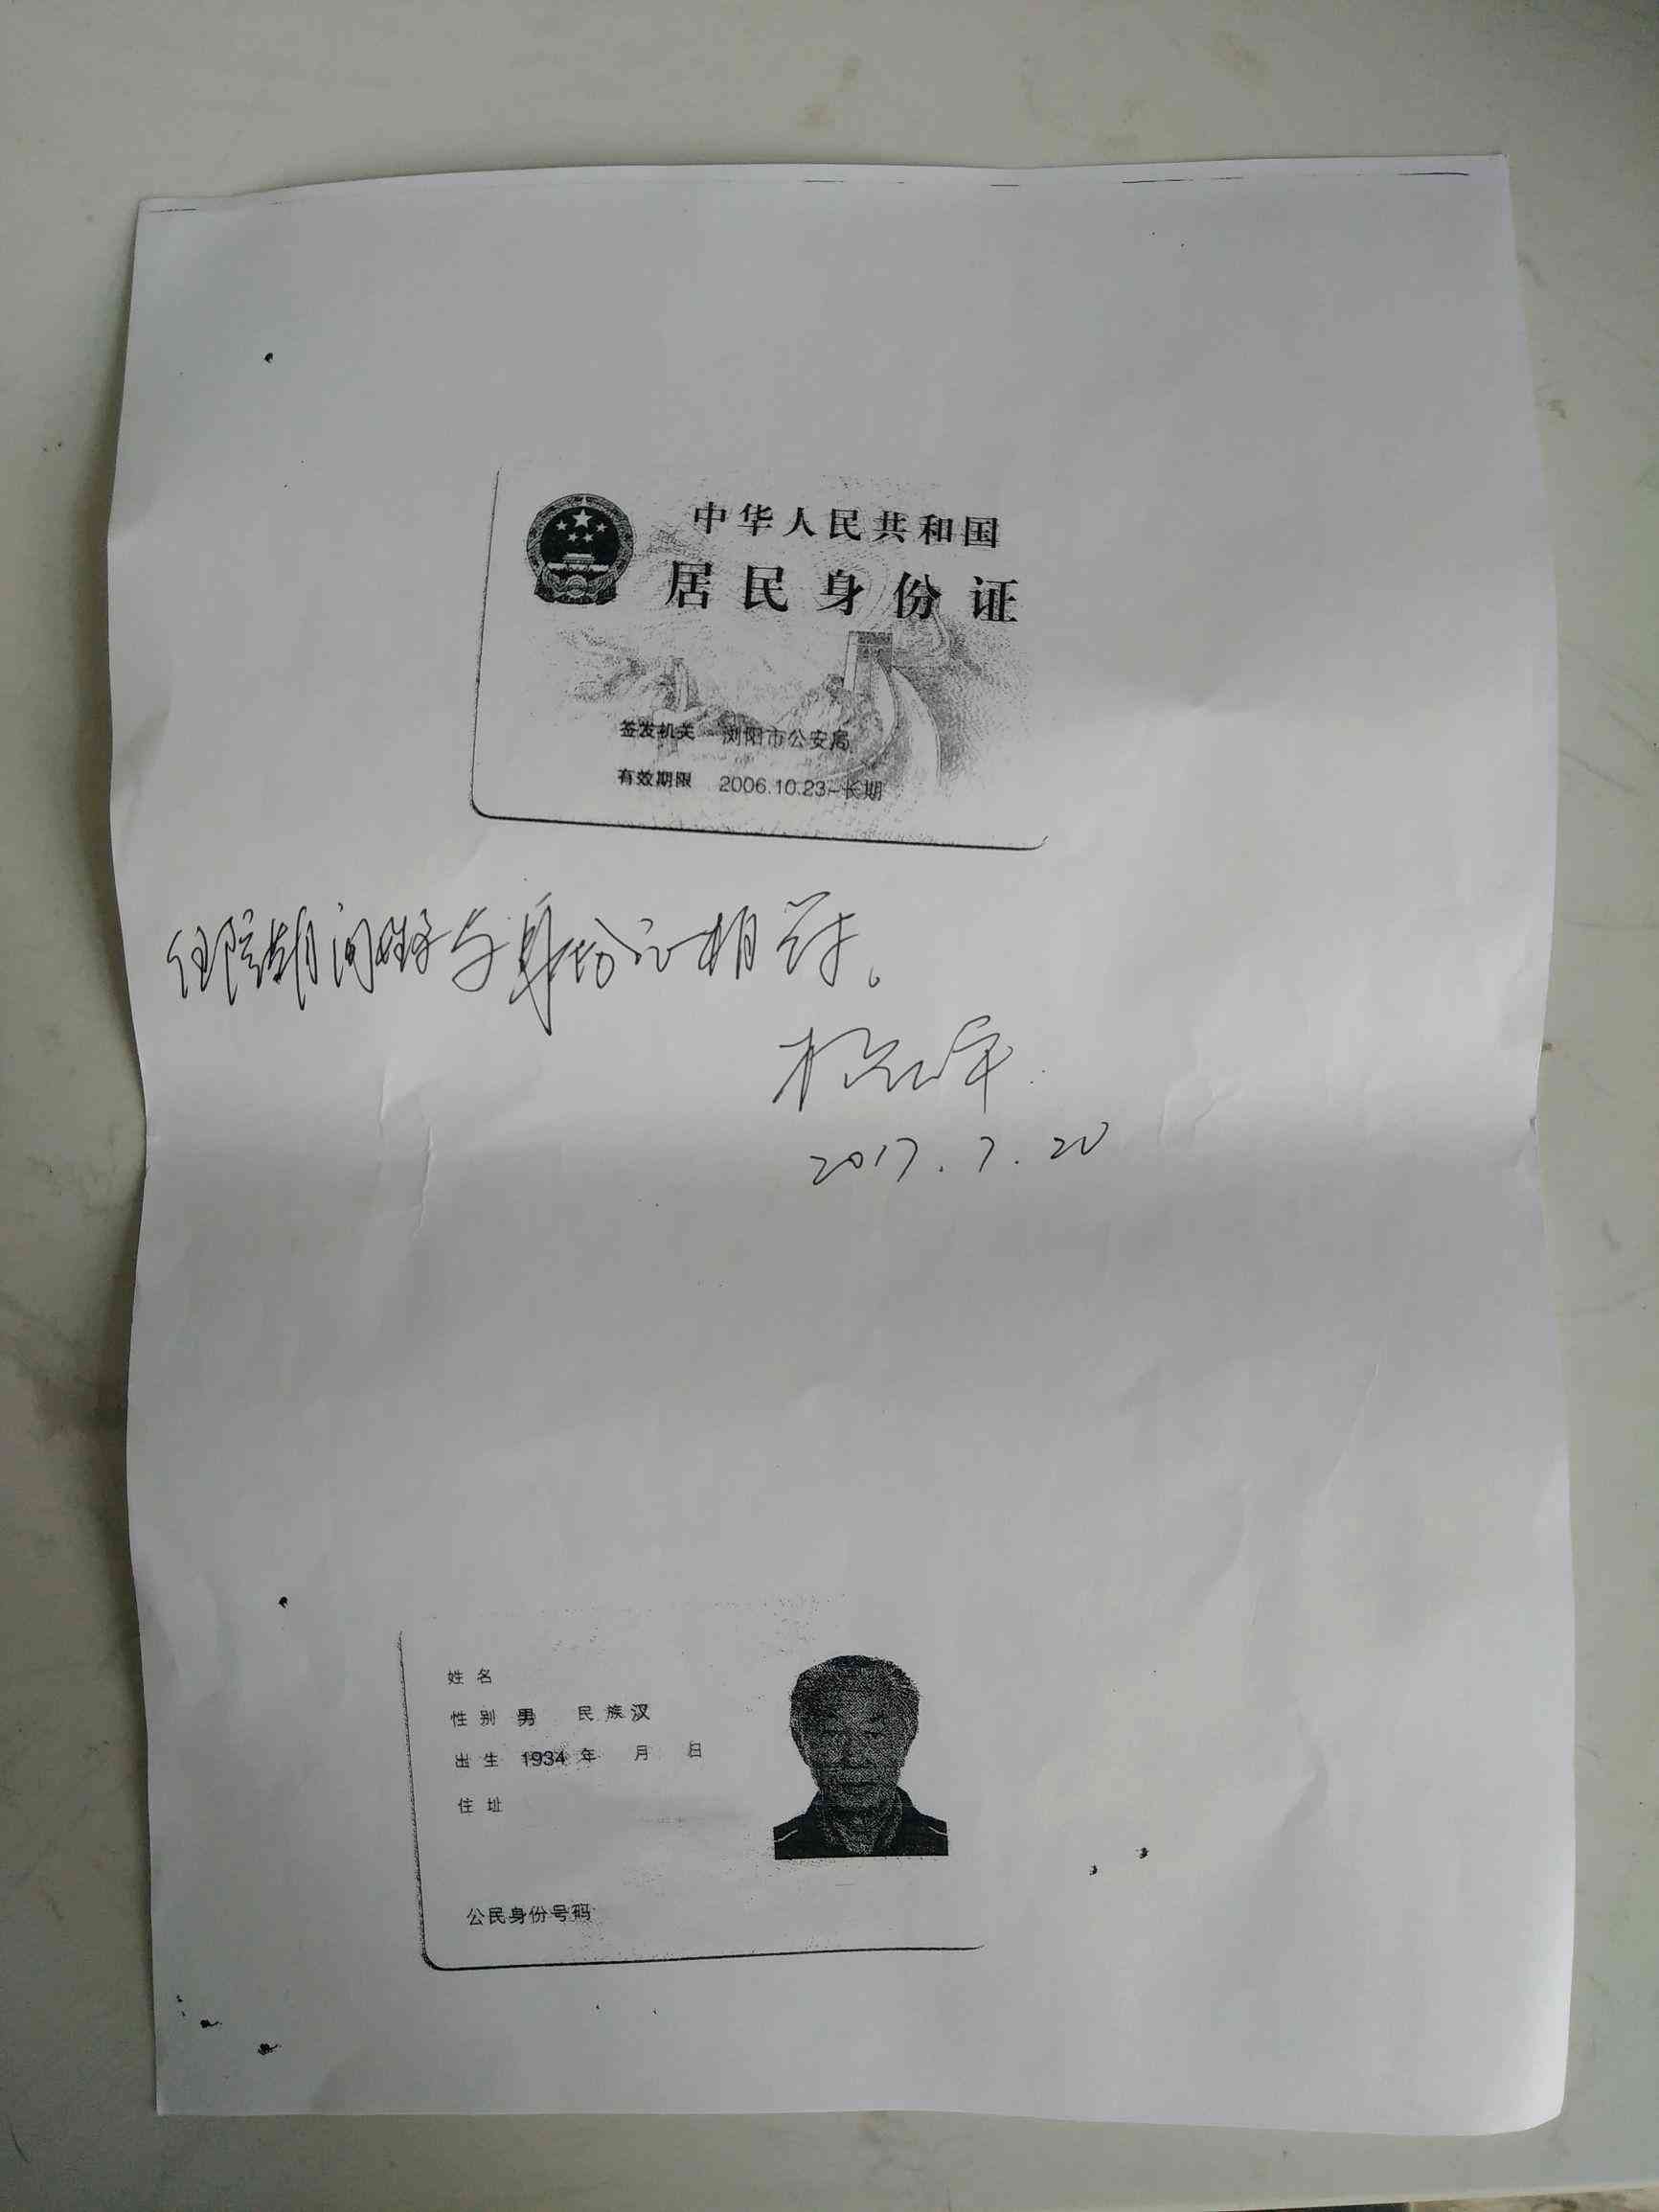 中华人民共和国
居民身份证
签发机关 浏阳市公安局
有效期限 2006.10.23-长期
住院期间姓名与身份证相符。
2017.7.20
姓名
性别 男 民族 汉
出生 1934 年 月 日
住址
公民身份号码